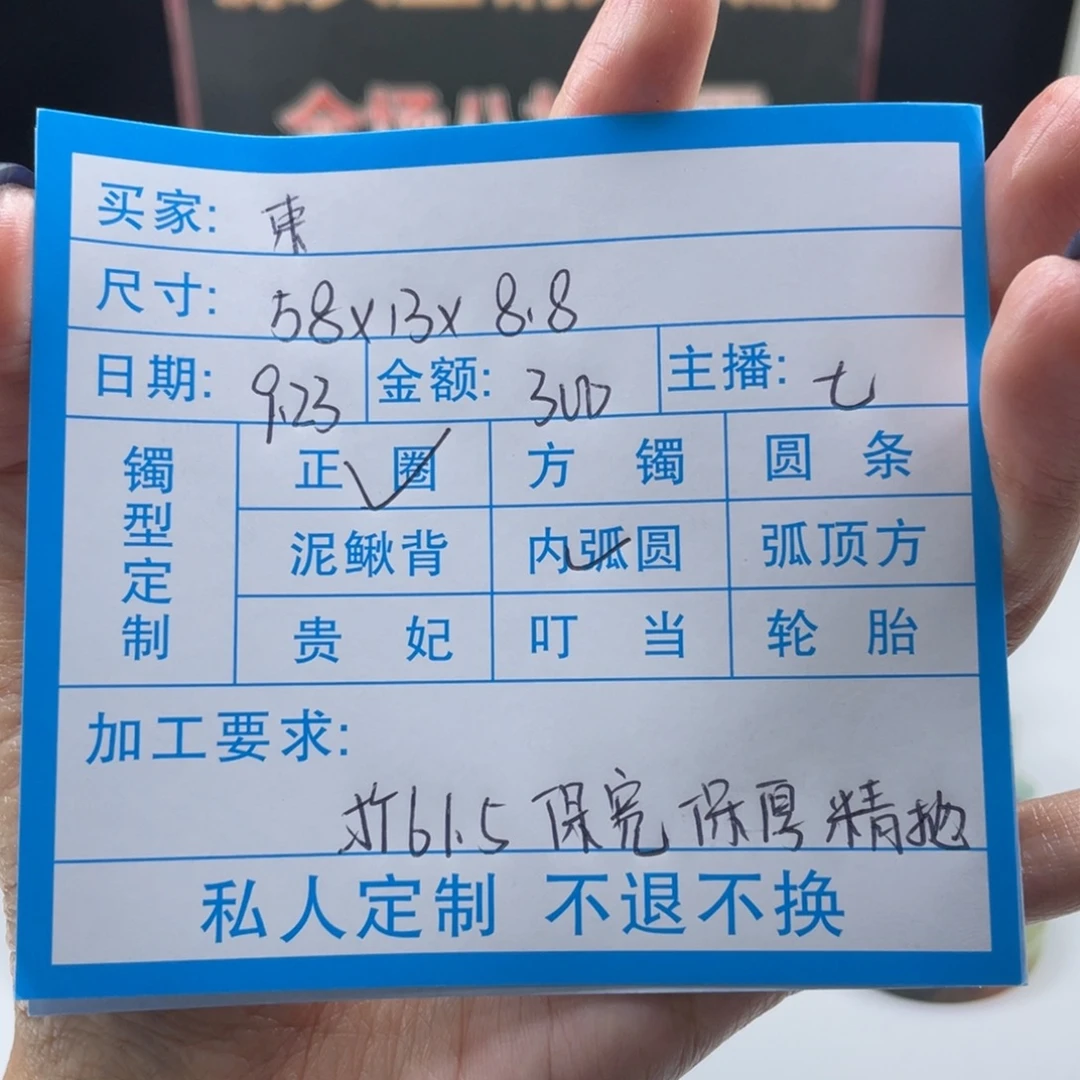 买家: 東
尺寸: 58x13x 8.8
日期: 9.23 金额: 300 主播: 七
镯型定制
正圈 方镯 圆条
泥鳅背 内弧圆 弧顶方
贵妃 叮当 轮胎
加工要求:
扩61.5 保宽 保厚 精抛
私人定制 不退不换